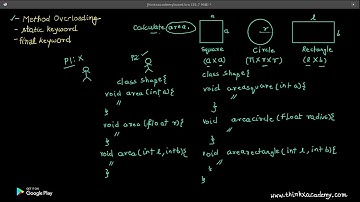 - Method Overloading
- static keyword
- final keyword
Calculate area.
a
a
r
l
b
Square
(a x a)
Circle
(π x r x r)
Rectangle
(l x b)
P1: X
P2: ✓
class Shape{
void area (int a){
//
}
void area (float r){
//
}
void area (int l, int b){
//
}
class Shape{
void areasquare (int a){
//
}
void areacircle (float radius){
//
}
void arearectangle (int l, int b){
//
}
}
GET IT ON
Google Play
www.thinkxacademy.com